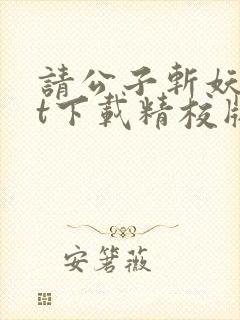 請公子斬妖
t下載精校版
安箬薇